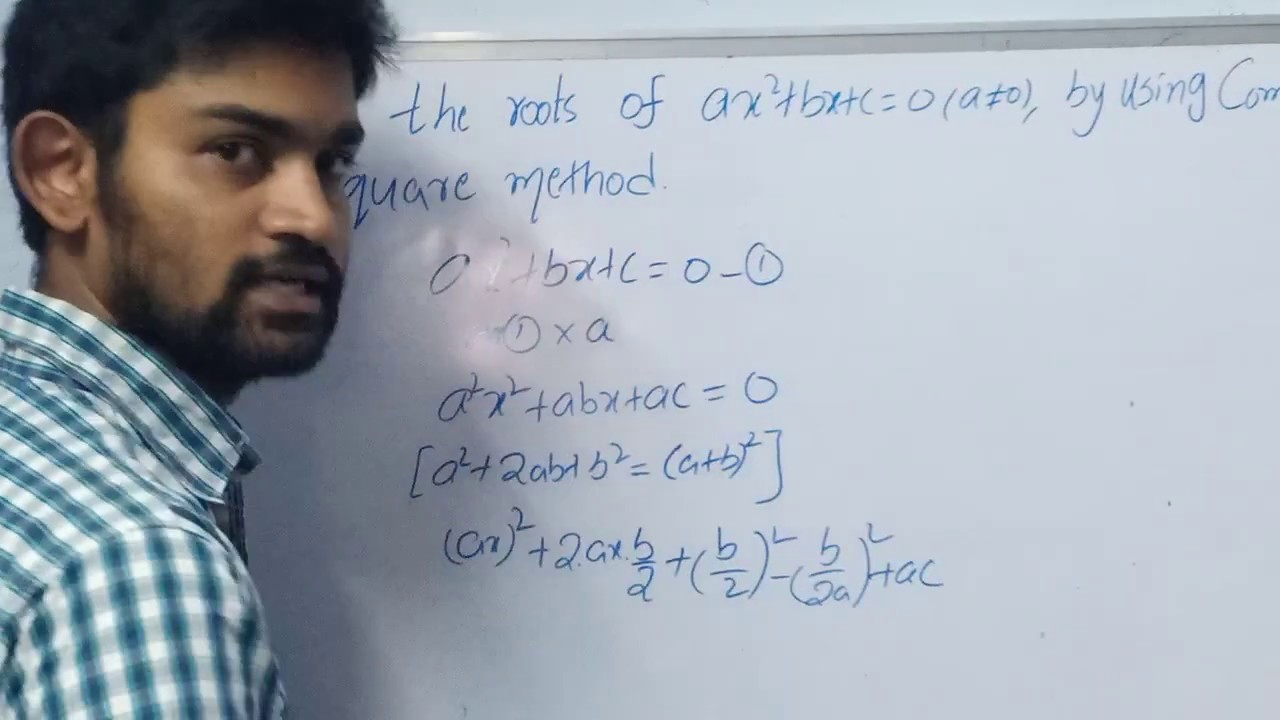 the roots of ax²+bx+c=0 (a≠0), by using Com
quare method.
+bx+c=0-①
①×a
a²x²+abx+ac=0
[a²+2ab+b²=(a+b)²]
(ax)²+2.ax.b/2+(b/2)²-(b/2a)²+ac